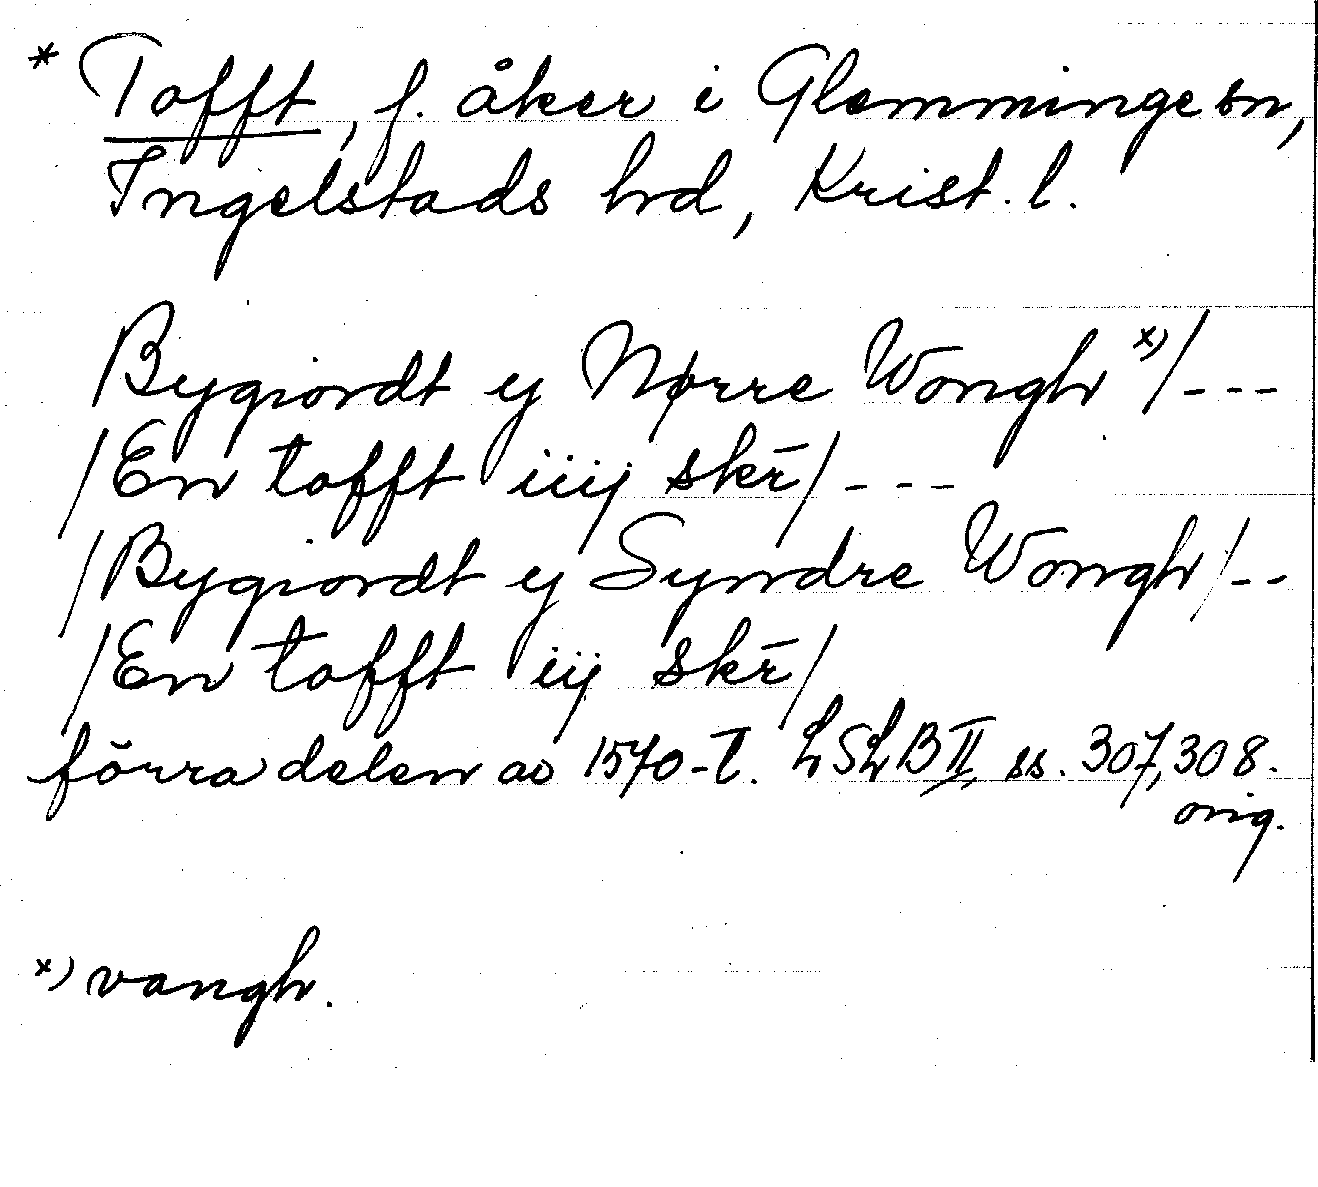 * Tofft, f. åker i Glemminge sn,
Ingelstads hd, Krist. l.
Bygiordt ij Nørre Wongh x)/---
/En tofft iiij skr̄/---
/Bygiordt ij Syndre Wongh/--
/En tofft iij skr̄/
förra delen av 1570-t. LSLB II, ss. 307, 308.
orig.
x) vangh.